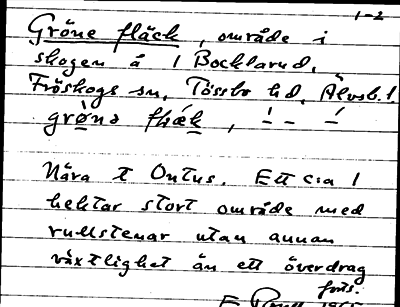 1-2
Gröne fläck, område i
skogen å 1 Bocklarud,
Fröskogs sn, Tössbo hd, Älvsb. l.
grø̀nə flæ̀k, ! – – !
Nära t Ontus. Ett c:a 1
hektar stort område med
rullstenar utan annan
växtlighet än ett överdrag
forts.